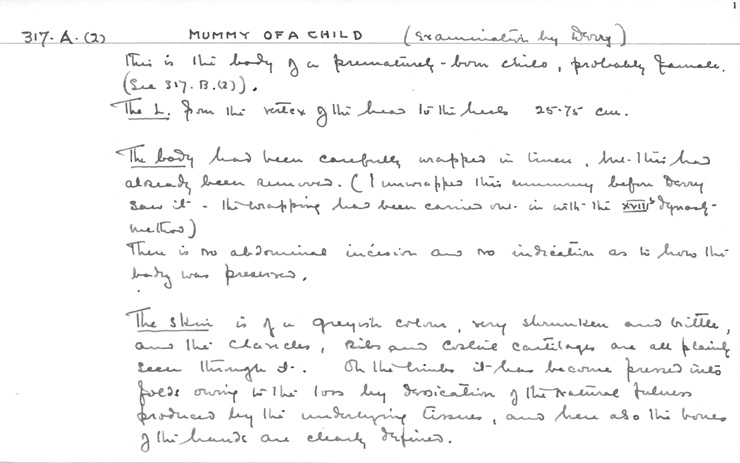 1
317. A. (2) MUMMY OF A CHILD (Examination by Derry)
This is the body of a prematurely-born child, probably female.
(See 317. B. (2)).
The L. from the vertex of the head to the heels 25.75 cm.
The body had been carefully wrapped in linen, but this had
already been removed. (I unwrapped this mummy before Derry
saw it - the wrapping had been carried out in with the XVIII's dynasty
method)
There is no abdominal incision and no indication as to how the
body was preserved.
The skin is of a greyish colour, very shrunken and brittle,
and the clavicles, Ribs and Costal cartilages are all plainly
seen through it. On the limbs it has become pressed into
folds owing to the loss by dessication of the natural fulness
produced by the underlying tissues, and here also the bones
of the hands are clearly defined.